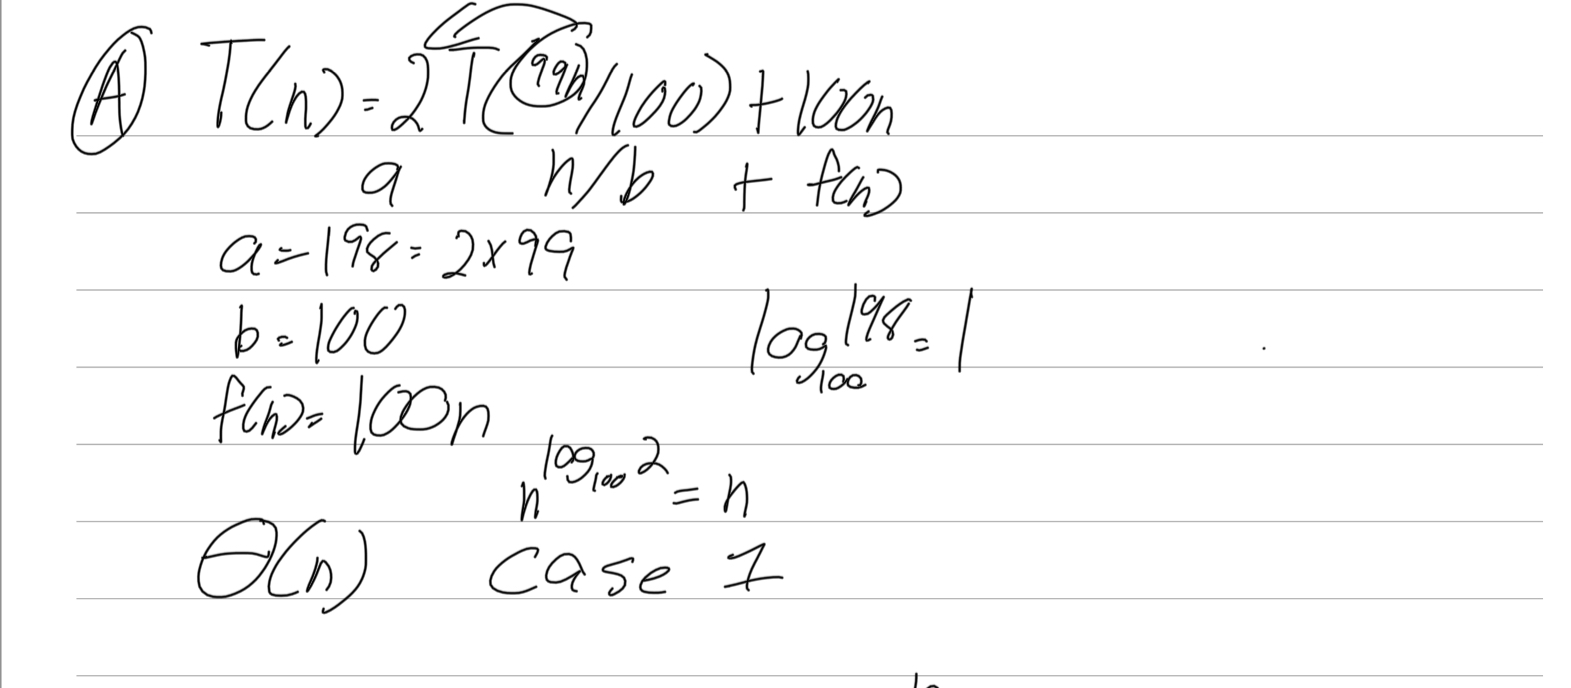 A T(n) = 2T(99n/100) + 100n
a n/b + f(n)
a = 198 = 2 x 99
b = 100 log₁₀₀ 198 = 1
f(n) = 100n
n^log₁₀₀ 2 = n
Θ(n) case 1